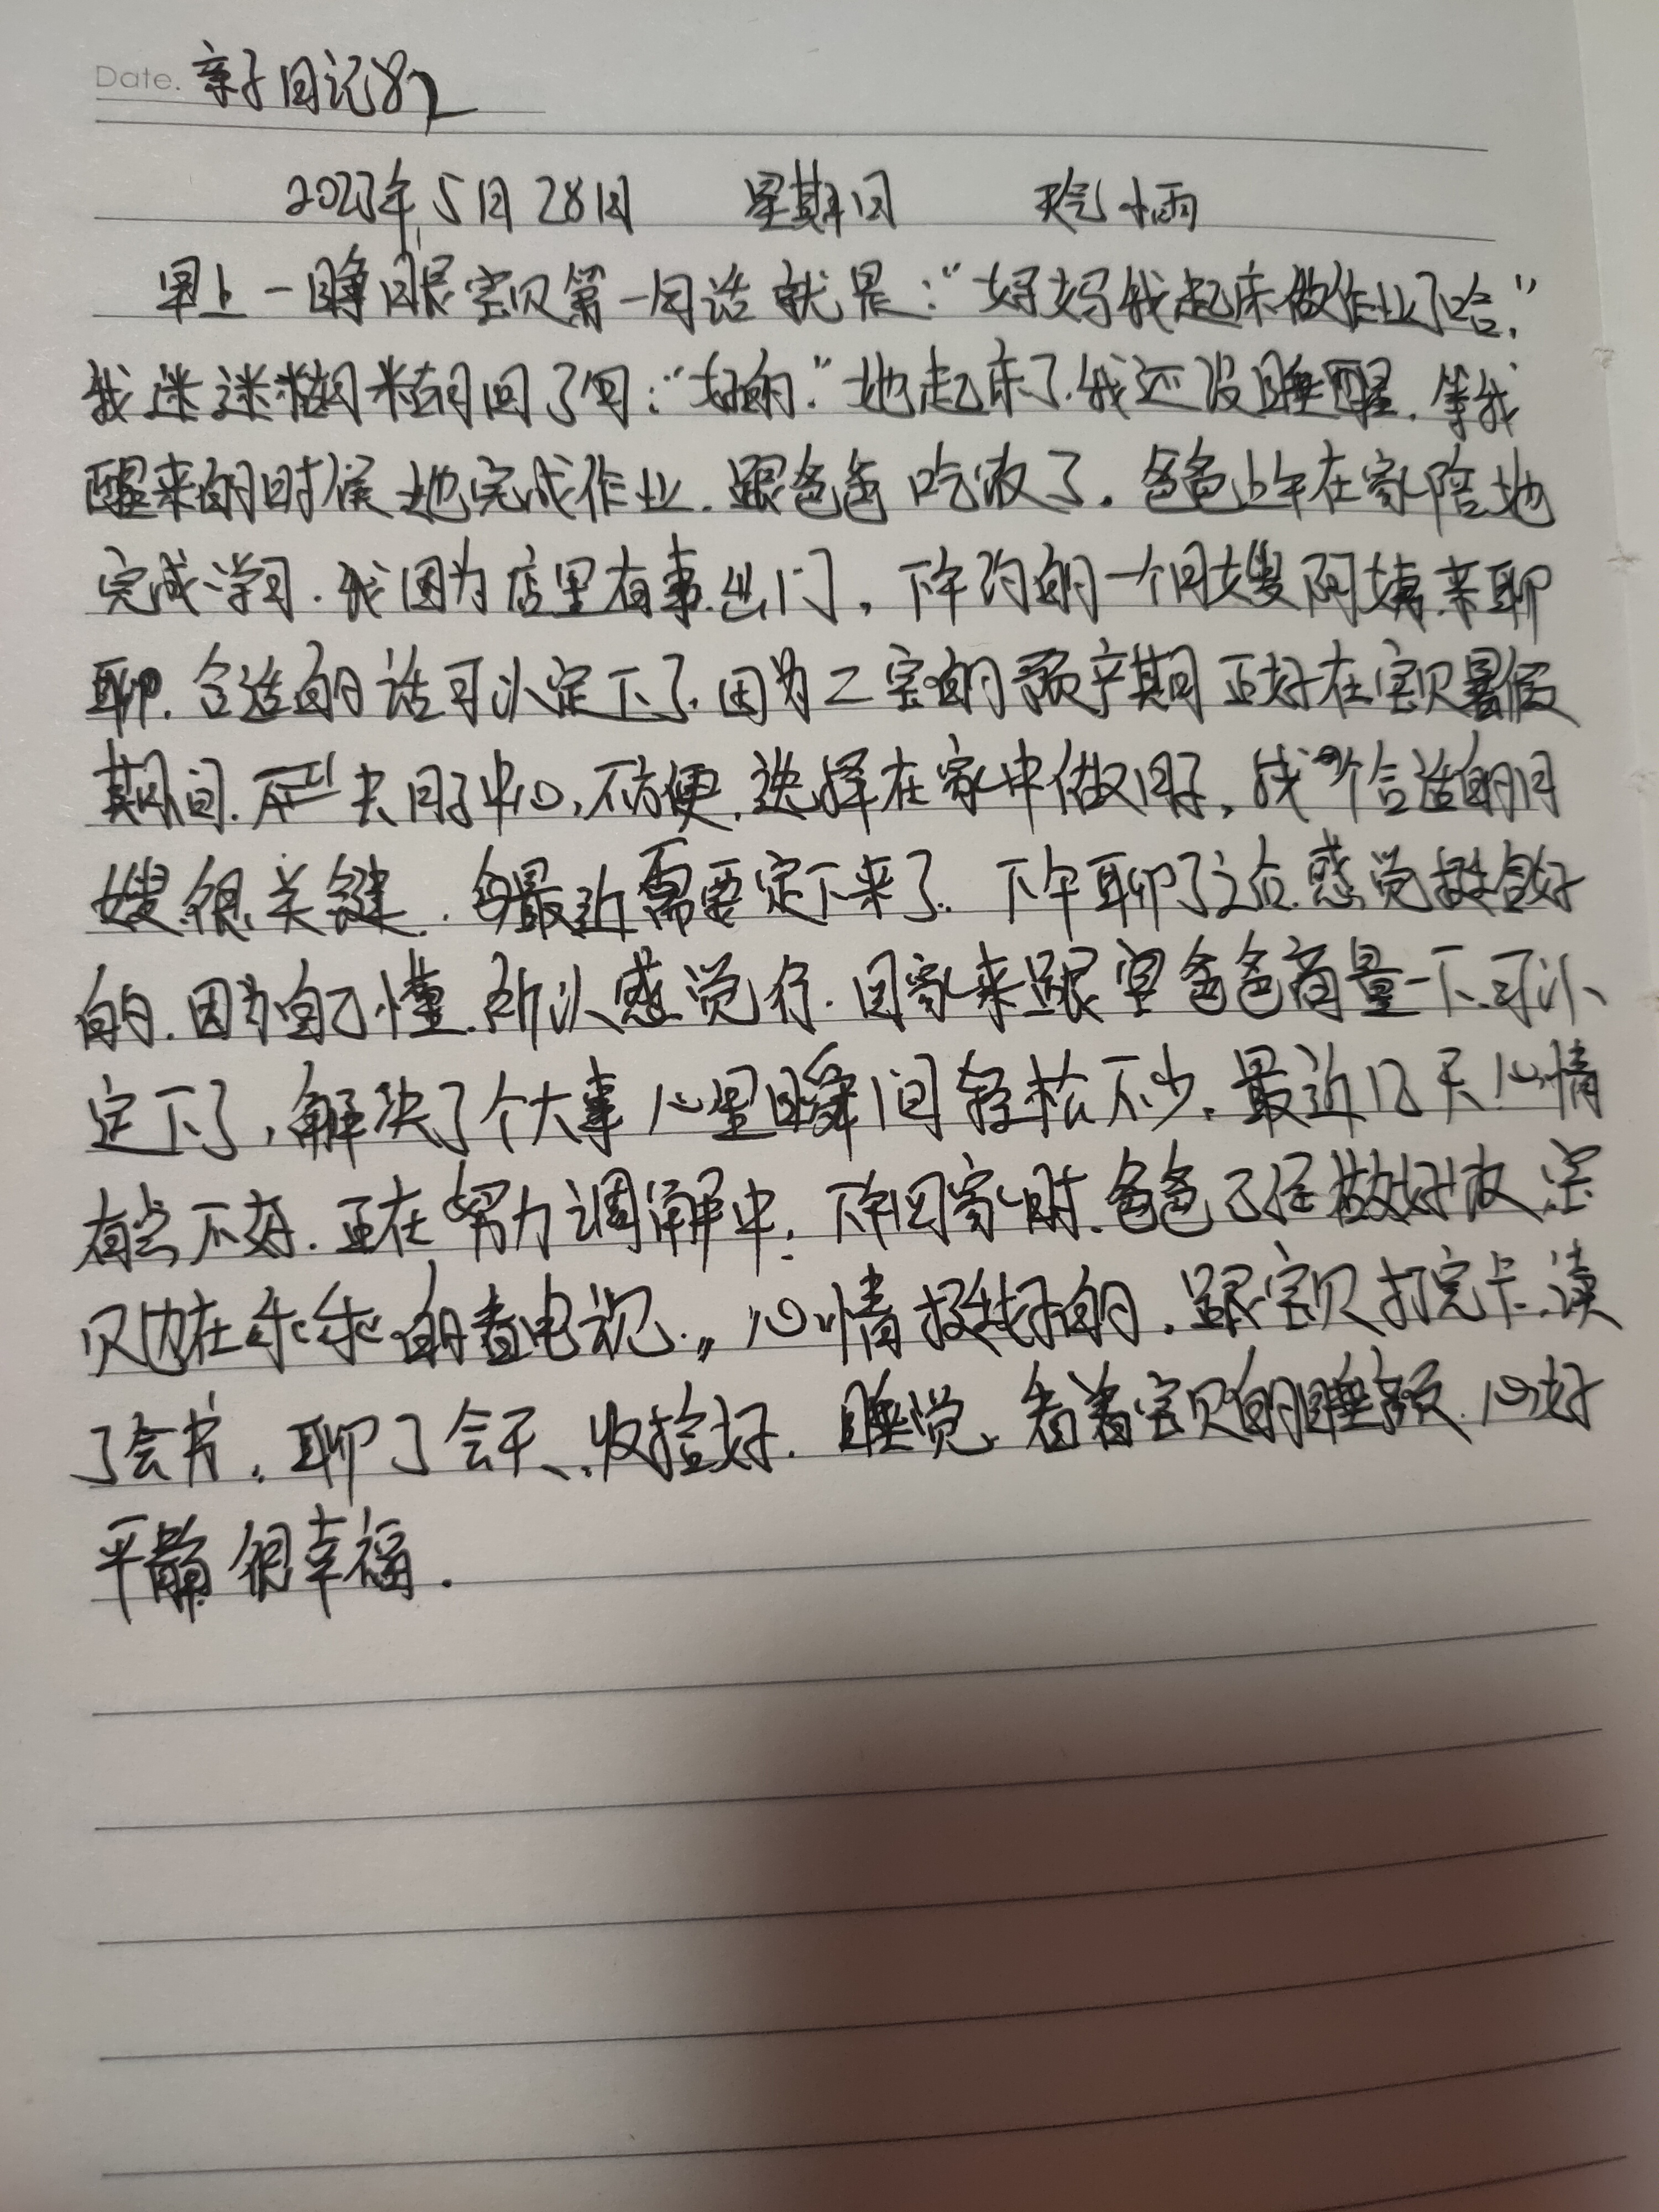 Date. 亲子日记82
2023年5月28日 星期日 天气小雨
早上一睁眼宝贝第一句话就是:“妈妈我起床做作业了哈.”
我迷迷糊糊回了句:“好的.”她起床了.我还没睡醒.等我
醒来的时候她完成作业.跟爸爸吃饭了.爸爸上午在家陪她
完成学习.我因为店里有事出门,下午约的一个月嫂阿姨来聊
聊.合适的话可以定下了.因为二宝的预产期正好在宝贝暑假
期间.去月子中心,不方便.选择在家中做月子,找个合适的月
嫂很关键.最近需要定下来了.下午聊了之后.感觉挺好
的.因为自己懂.所以感觉行.回家来跟宝爸爸商量一下.可以
定下了,解决了个大事心里瞬间轻松不少.最近几天心情
有点不好.正在努力调解中.下午回家时.爸爸已经做好饭.宝
贝也在乐乐的看电视.,心情挺好的.跟宝贝打完卡.读
了会书,聊了会天.收拾好.睡觉.看着宝贝的睡颜.心好
平静很幸福.